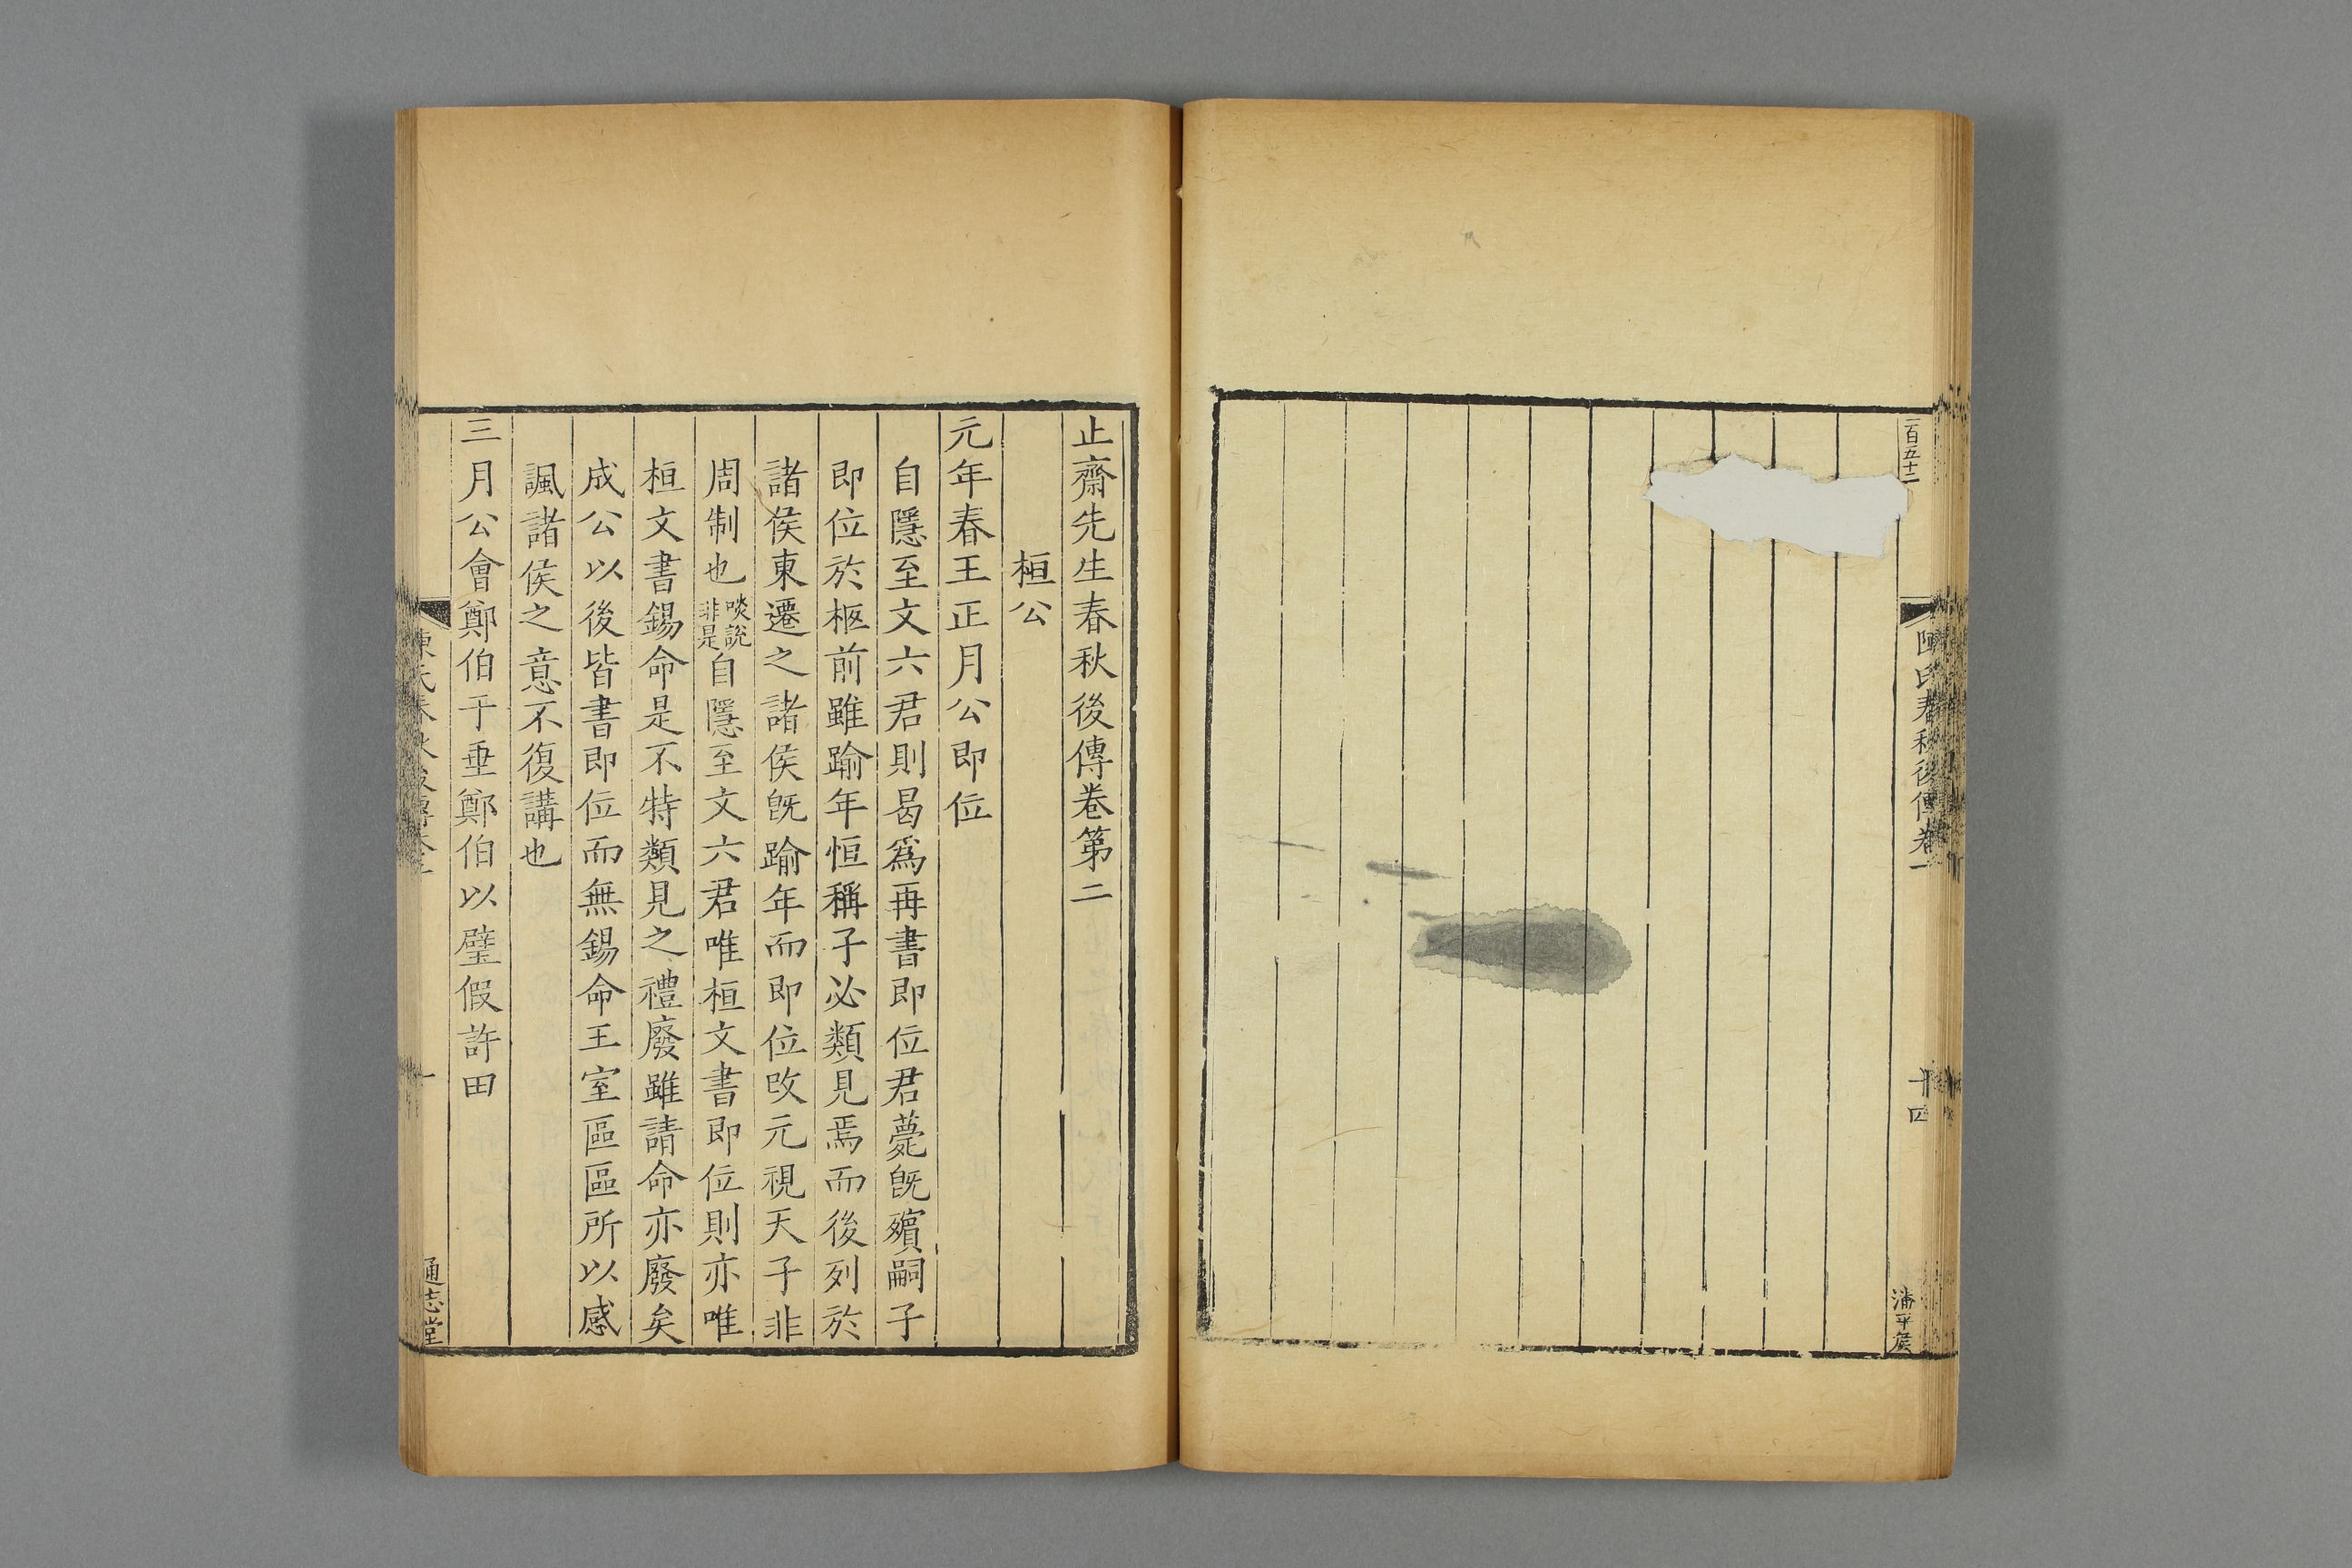 一百五十二
陳氏春秋後傳卷一
十四
潘平侯
止齋先生春秋後傳卷第二
桓公
元年春王正月公即位
自隱至文六君則曷爲再書即位君薨旣殯嗣子
即位於柩前雖踰年恒稱子必類見焉而後列於
諸侯東遷之諸侯旣踰年而即位改元視天子非
周制也啖說非是自隱至文六君唯桓文書即位則亦唯
桓文書錫命是不特類見之禮廢雖請命亦廢矣
成公以後皆書即位而無錫命王室區區所以感
諷諸侯之意不復講也
三月公會鄭伯于垂鄭伯以璧假許田
陳氏春秋後傳卷二
一
通志堂